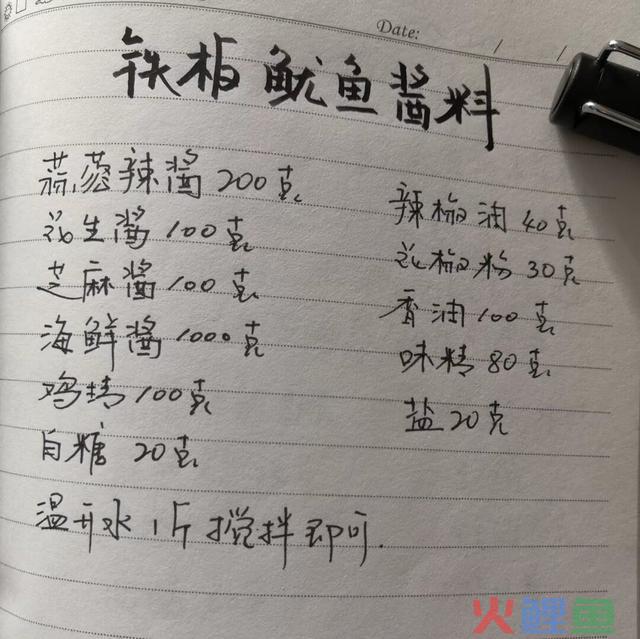 Date: / /
铁板鱿鱼酱料
蒜蓉辣酱 200克
花生酱 100克
芝麻酱 100克
海鲜酱 1000克
鸡精 100克
白糖 20克
辣椒油 40克
花椒粉 30克
香油 100克
味精 80克
盐 20克
温开水 1斤 搅拌即可.
火鲤鱼